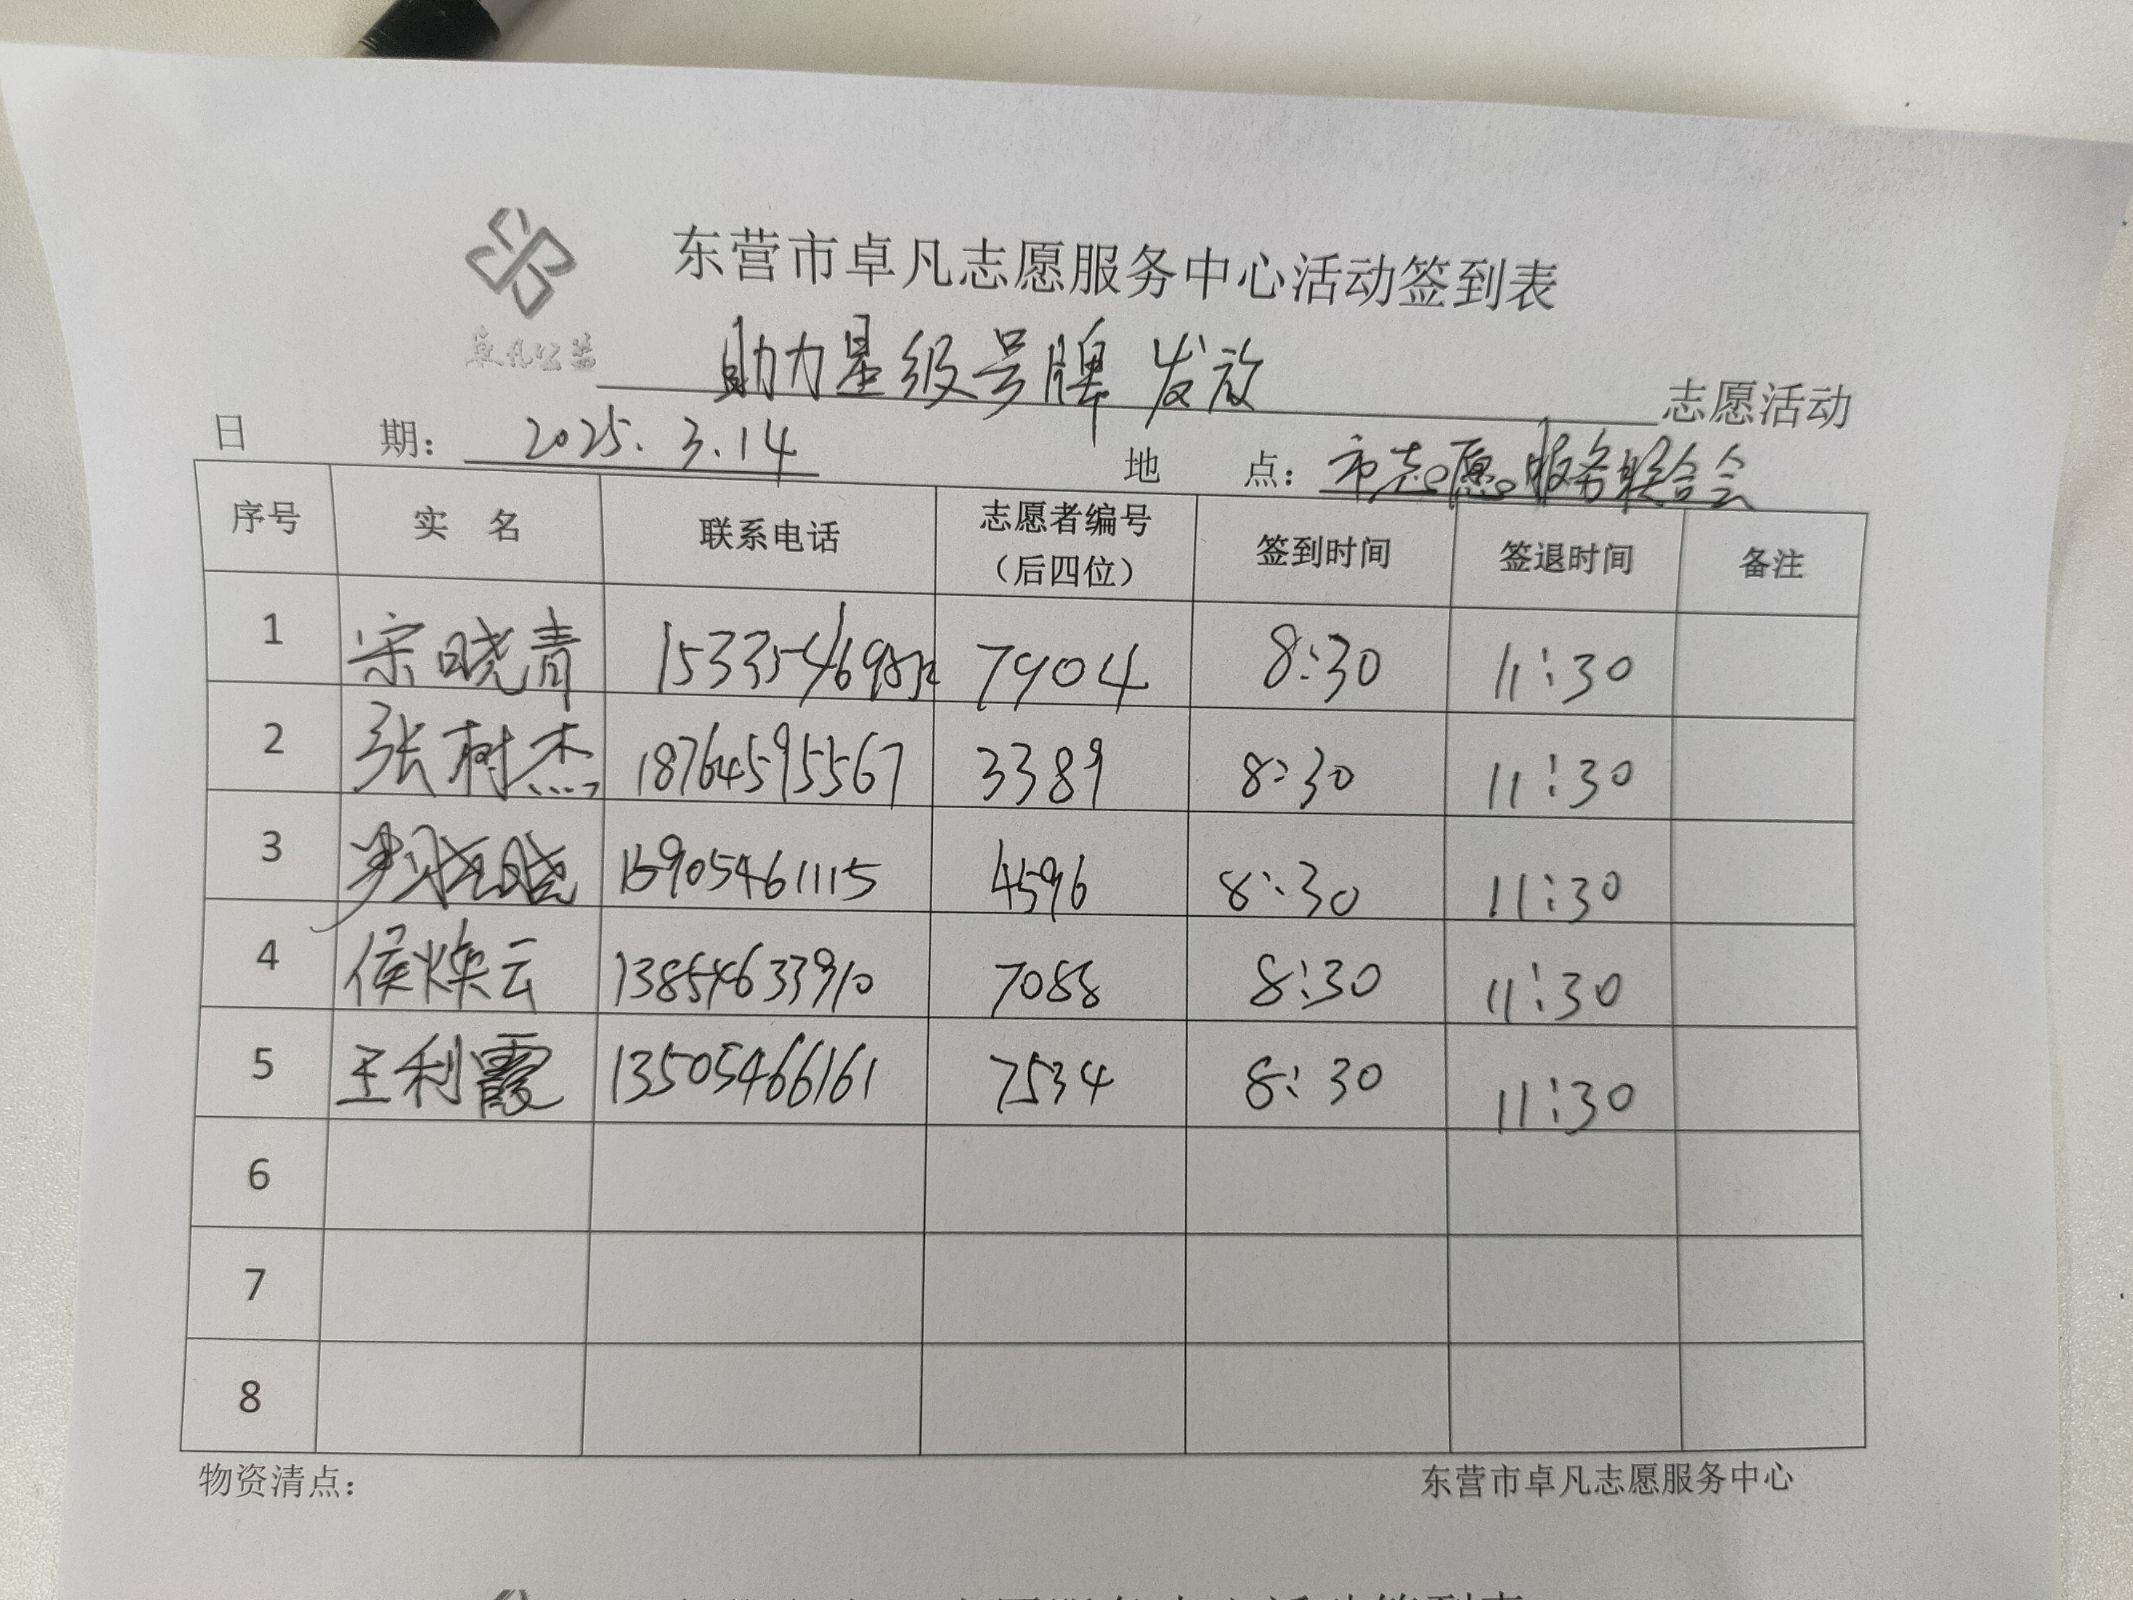 东营市卓凡志愿服务中心活动签到表
卓凡公益
助力星级号牌发放 志愿活动
日 期: 2025.3.14 地 点: 市志愿服务联合会
序号 实 名 联系电话 志愿者编号(后四位) 签到时间 签退时间 备注
1 宋晓青 7904 8:30 11:30
2 张树杰 18764595567 3389 8:30 11:30
3 4596 8:30 11:30
4 侯焕云 13854633910 7088 8:30 11:30
5 王利霞 13505466161 7534 8:30 11:30
6
7
8
物资清点: 东营市卓凡志愿服务中心